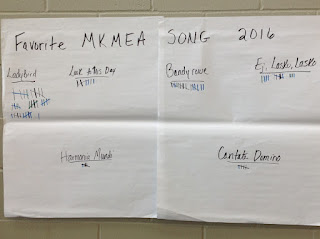 Favorite MKMEA SONG 2016
Ladybird
Look to this Day
Bandyrowe
Ej, Lasko, Lasko
Harmonia Mundi
Cantate Domino